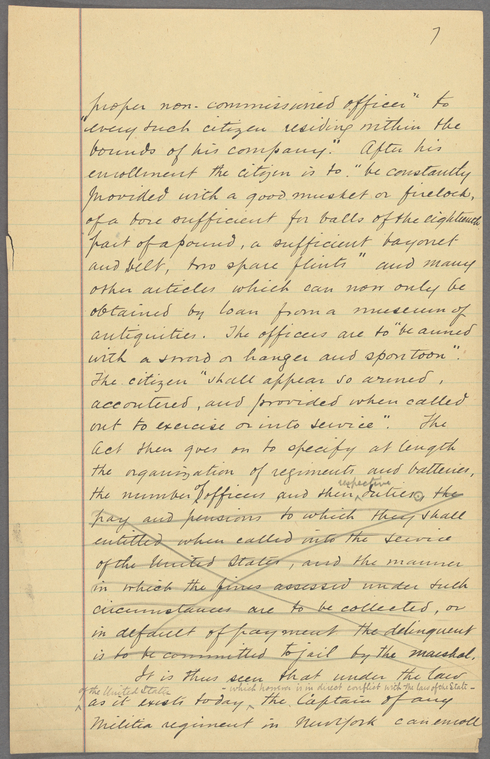 7
proper non-commissioned officer" to
"every such citizen residing within the
bounds of his company." After his
enrollment the citizen is to "be constantly
provided with a good musket or firelock,
of a bore sufficient for balls of the eighteenth
part of a pound, a sufficient bayonet
and belt, two spare flints" and many
other articles which can now only be
obtained by loan from a museum of
antiquities. The officers are to "be armed
with a sword or hanger and spontoon".
The citizen "shall appear so armed,
accoutered, and provided when called
out to exercise or into service". The
Act then goes on to specify at length
the organization of regiments and batteries,
respective
the number of officers and their duties, the
pay and pensions to which they shall
entitled when called into the service
of the United States, and the manner
in which the fines assessed under such
circumstances are to be collected, or
in default of payment the delinquent
is to be committed to jail by the marshal.
It is thus seen that under the law
of the United States - which however is in direct conflict with the law of the State -
as it exists today, the Captain of any
Militia regiment in New York can enroll